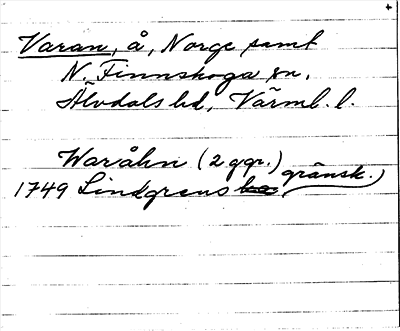 Varan, å, Norge samt
N. Finnskoga sn,
Älvdals hd, Värml. l.
Waråhn (2 ggr.)
1749 Lindgrens gränsk.)